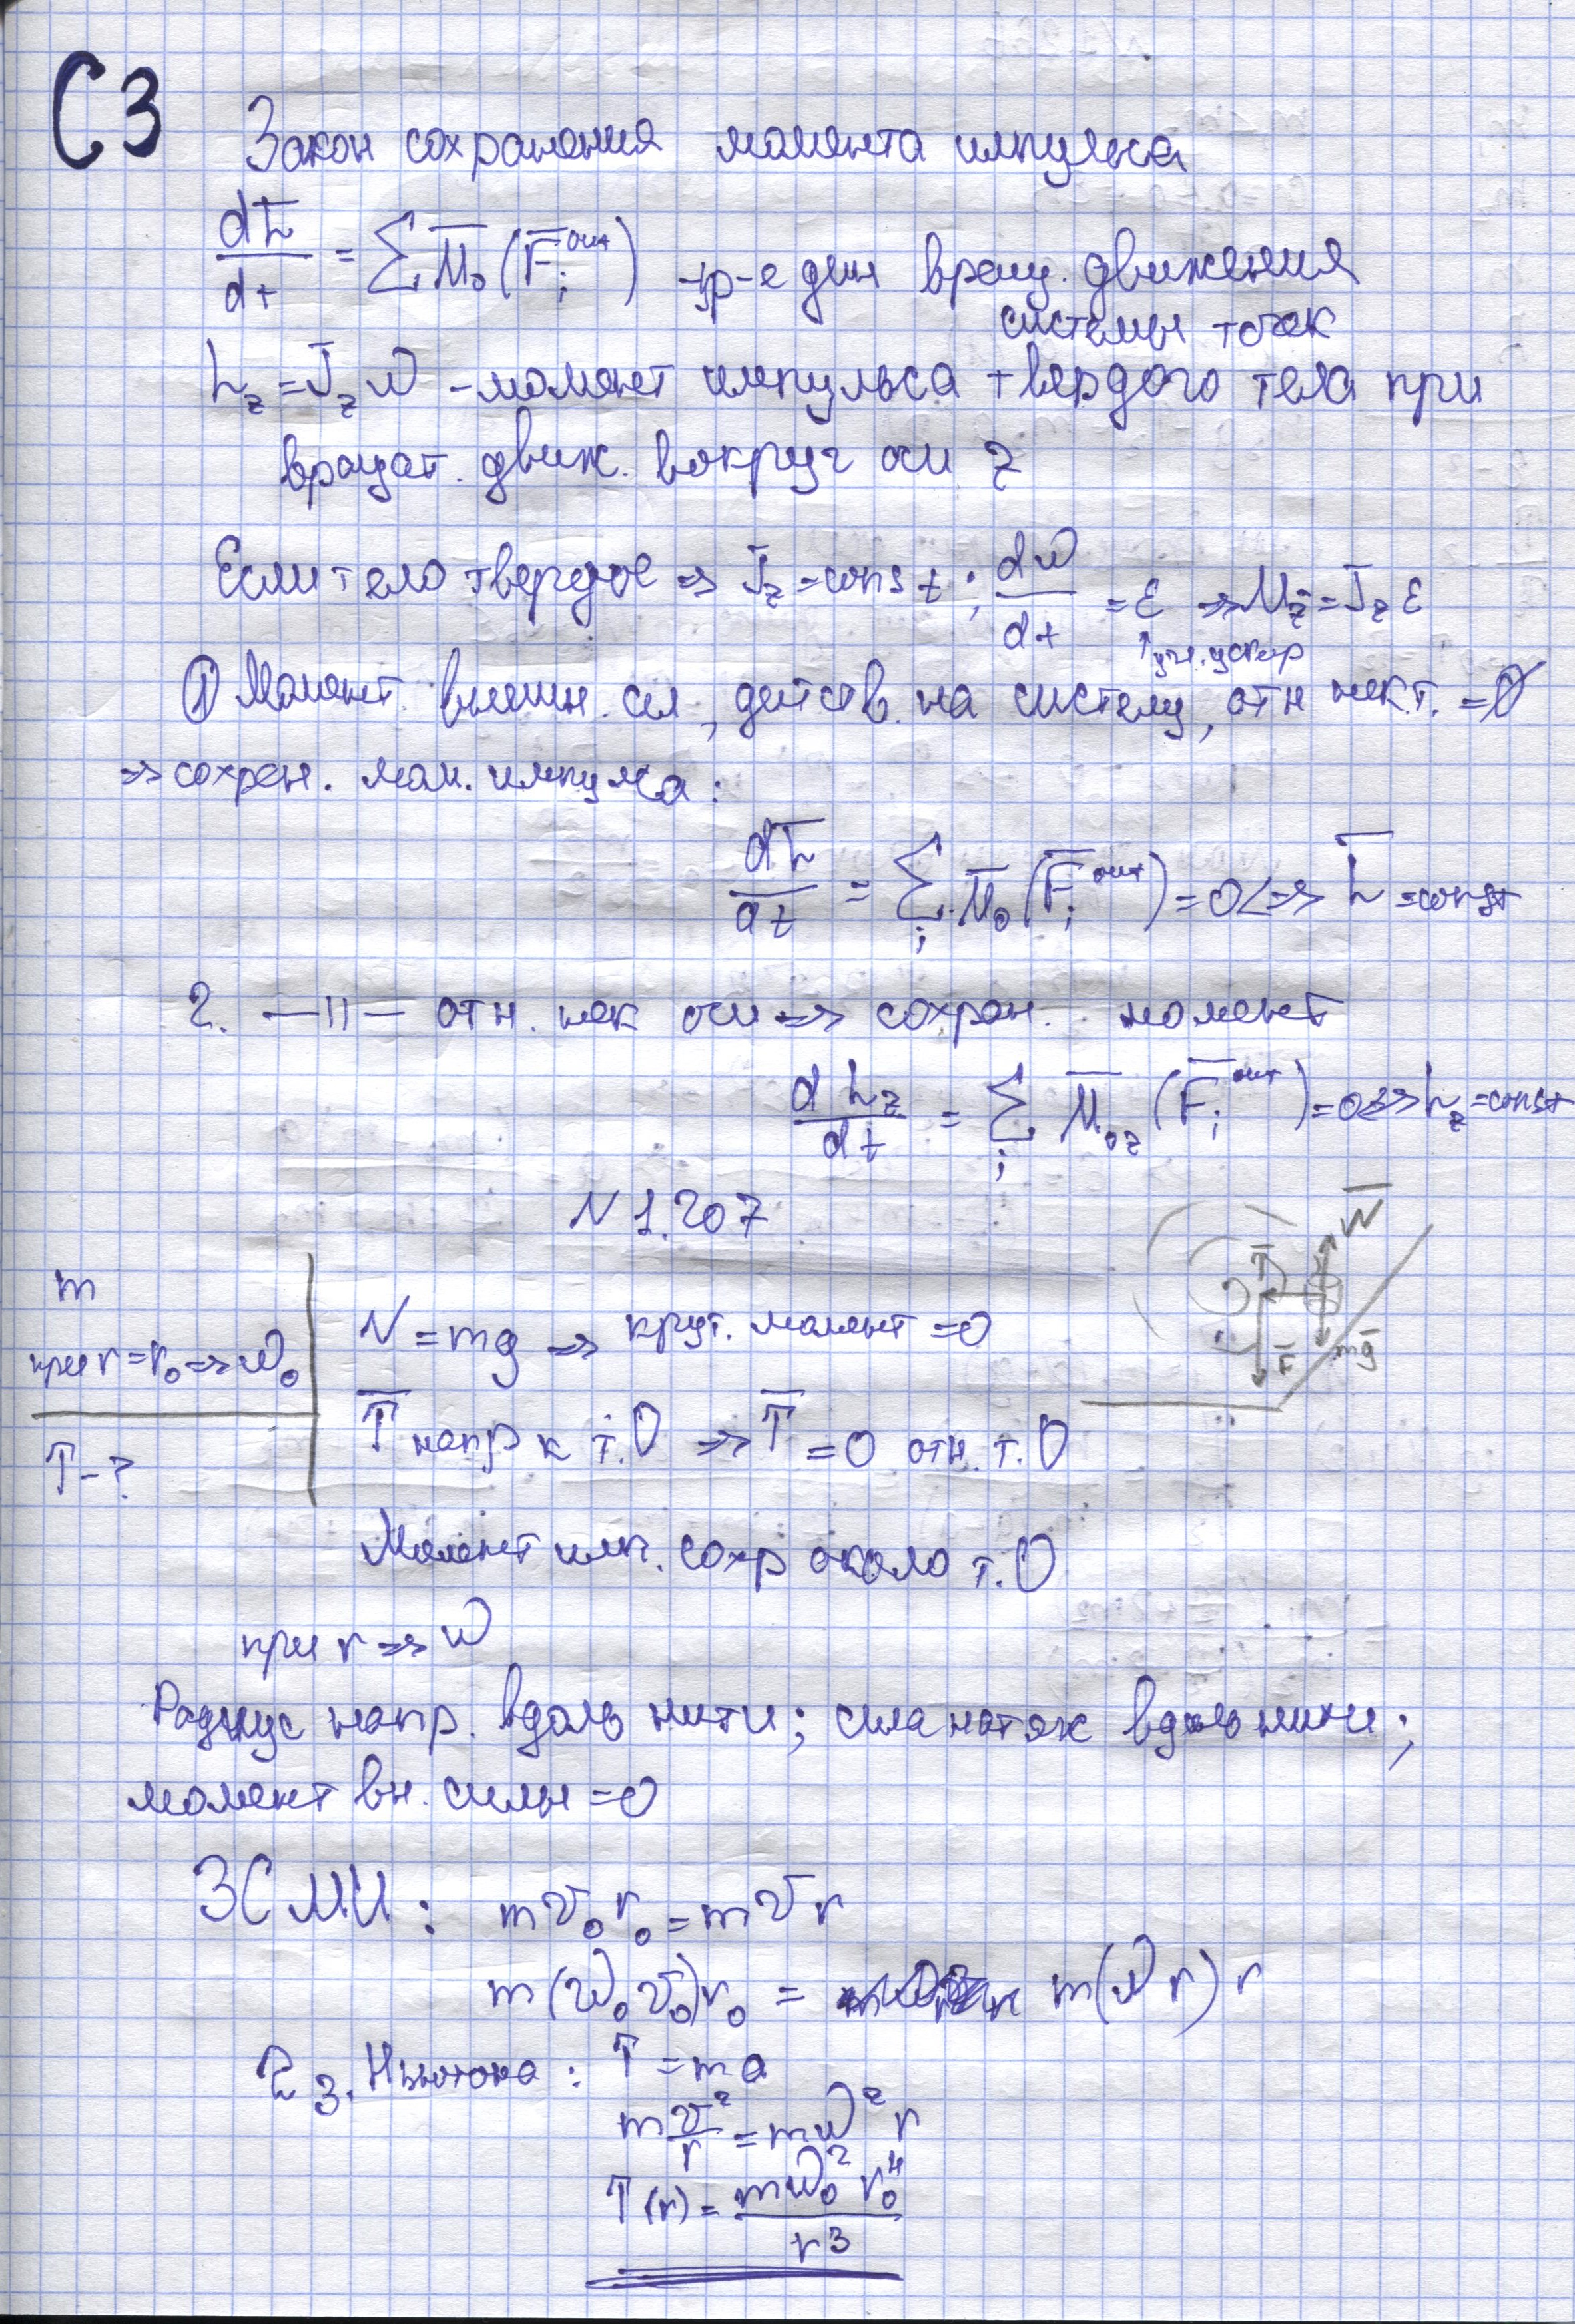 С3
Закон сохранения момента импульса
dL̅/dt = ∑ M̅₀ (F̅ᵢᵒᵘᵗ) - ур-е дин вращ. движения
системы точек
L_z = J_z ω - момент импульса твердого тела при
вращат. движ. вокруг оси z
Если тело твердое => J_z = const; dω/dt = ε => M_z = J_z ε
↑ угл. ускор
① Момент внешн. сил, действ. на систему, отн нек.т. = 0
=> сохран. мом. импульса:
dL̅/dt = ∑ᵢ M̅₀ (F̅ᵢᵒᵘᵗ) = 0 <=> L̅ = const
2. —||— отн. нек оси => сохран. момент
dL_z/dt = ∑ᵢ M̅₀z (F̅ᵢᵒᵘᵗ) = 0 <=> L_z = const
N 1.207
m
при r = r₀ => ω₀
T - ?
N̅
T̅
O
F̅
mg̅
N = mg => крут. момент = 0
T̅ напр к т. O => T̅ = 0 отн. т. O
Момент имп. сохр около т. O
при r => ω
Радиус напр. вдоль нити; сила натяж вдоль нити;
момент вн. силы = 0
ЗСМИ: mv₀r₀ = mvr
m(ω₀v₀)r₀ = m(ωr)r
2 з. Ньютона: T = ma
m v²/r = mω²r
T(r) = mω₀²r₀⁴/r³